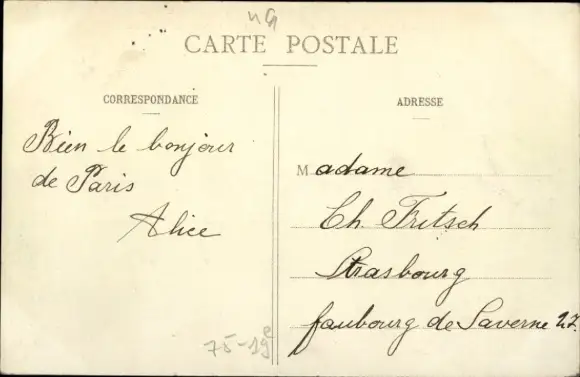 CARTE POSTALE
CORRESPONDANCE
Bien le bonjour
de Paris
Alice
ADRESSE
Madame
Ch. Fritsch
Strasbourg
faubourg de Saverne 27.
75-19e